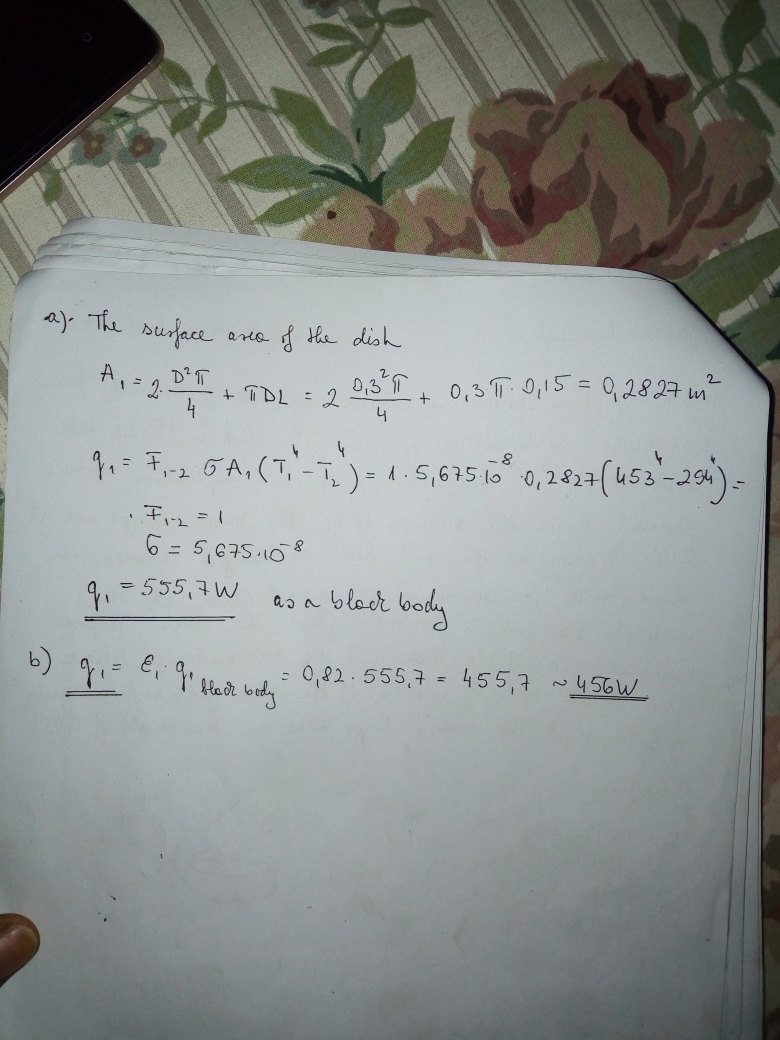 a). The surface area of the dish
A₁ = 2·D²π/4 + πDL = 2 0,3²π/4 + 0,3·π·0,15 = 0,2827 m²
q₁ = F₁₋₂ σA₁(T₁⁴ - T₂⁴) = 1·5,675·10⁻⁸·0,2827(453⁴ - 294⁴) =
· F₁₋₂ = 1
σ = 5,675·10⁻⁸
q₁ = 555,7W as a black body
b) q₁ = ε₁·q₁ black body = 0,82·555,7 = 455,7 ~ 456W